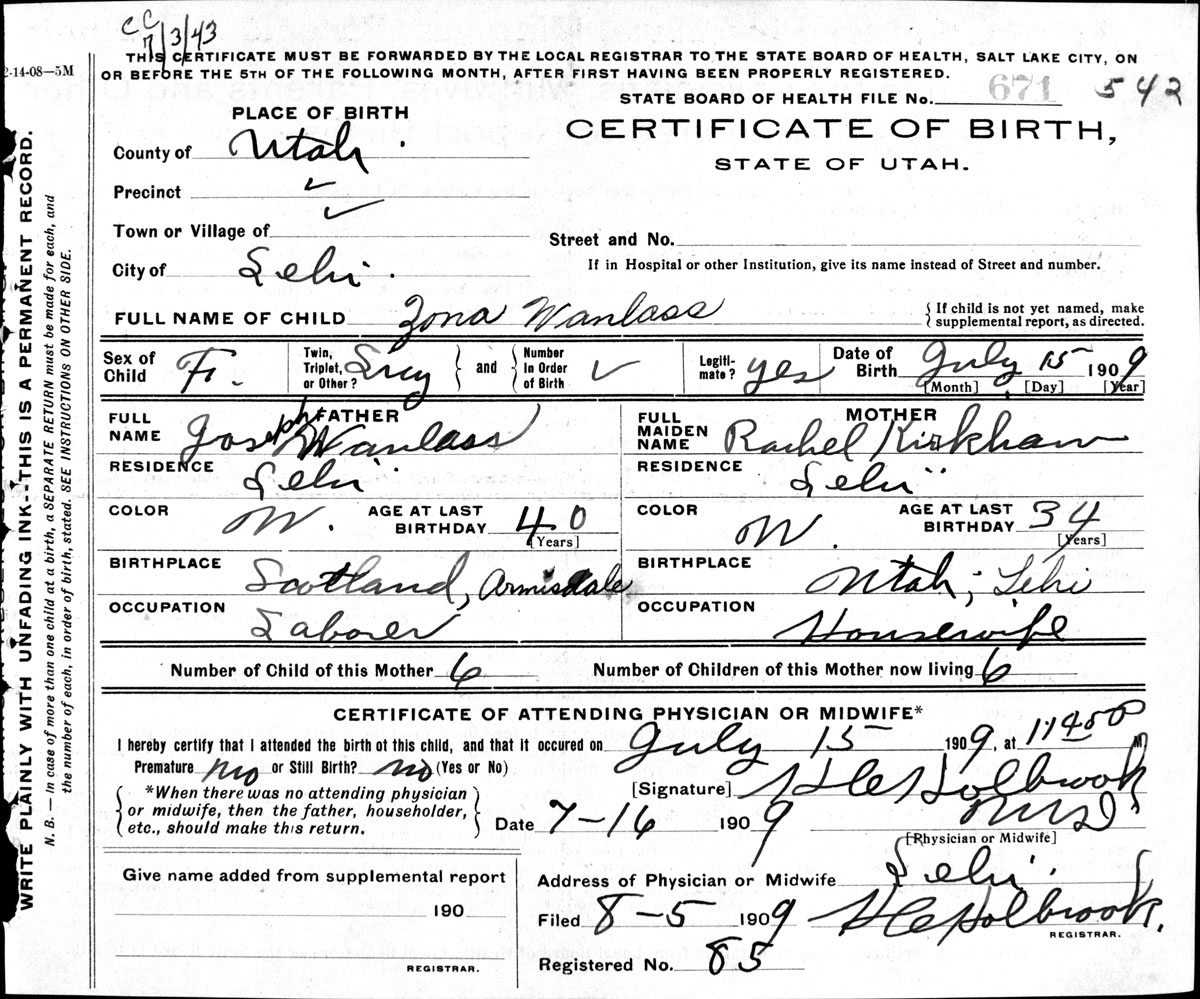 CC
7/3/43
2-14-08—5M
THIS CERTIFICATE MUST BE FORWARDED BY THE LOCAL REGISTRAR TO THE STATE BOARD OF HEALTH, SALT LAKE CITY, ON
OR BEFORE THE 5TH OF THE FOLLOWING MONTH, AFTER FIRST HAVING BEEN PROPERLY REGISTERED.
STATE BOARD OF HEALTH FILE No. 671 542
PLACE OF BIRTH
CERTIFICATE OF BIRTH,
STATE OF UTAH.
County of Utah.
Precinct ✓
Town or Village of ✓
Street and No.
City of Lehi.
If in Hospital or other Institution, give its name instead of Street and number.
FULL NAME OF CHILD Zona Wanlass
{ If child is not yet named, make
{ supplemental report, as directed.
Sex of Child F. Twin, Triplet, or Other? and Number In Order of Birth ✓ Legiti-mate? yes Date of Birth July 15 1909
[Month] [Day] [Year]
FULL NAME FATHER Joseph Wanlass
FULL MAIDEN NAME MOTHER Rachel Kirkham
RESIDENCE Lehi
RESIDENCE Lehi
COLOR W. AGE AT LAST BIRTHDAY 40 [Years]
COLOR W. AGE AT LAST BIRTHDAY 34 [Years]
BIRTHPLACE Scotland, Armisdale
BIRTHPLACE Utah; Lehi
OCCUPATION Laborer
OCCUPATION Housewife
Number of Child of this Mother 6 Number of Children of this Mother now living 6
CERTIFICATE OF ATTENDING PHYSICIAN OR MIDWIFE*
I hereby certify that I attended the birth of this child, and that it occured on July 15 1909, at M
Premature no or Still Birth? no (Yes or No)
[Signature] Holbrook
*When there was no attending physician
or midwife, then the father, householder,
etc., should make this return.
Date 7-16 1909 M.D.
[Physician or Midwife]
Give name added from supplemental report
190
REGISTRAR.
Address of Physician or Midwife Lehi.
Filed 8-5 1909 Holbrook.
REGISTRAR.
Registered No. 85
WRITE PLAINLY WITH UNFADING INK--THIS IS A PERMANENT RECORD.
N. B.— In case of more than one child at a birth, a SEPARATE RETURN must be made for each, and
the number of each, in order of birth, stated. SEE INSTRUCTIONS ON OTHER SIDE.